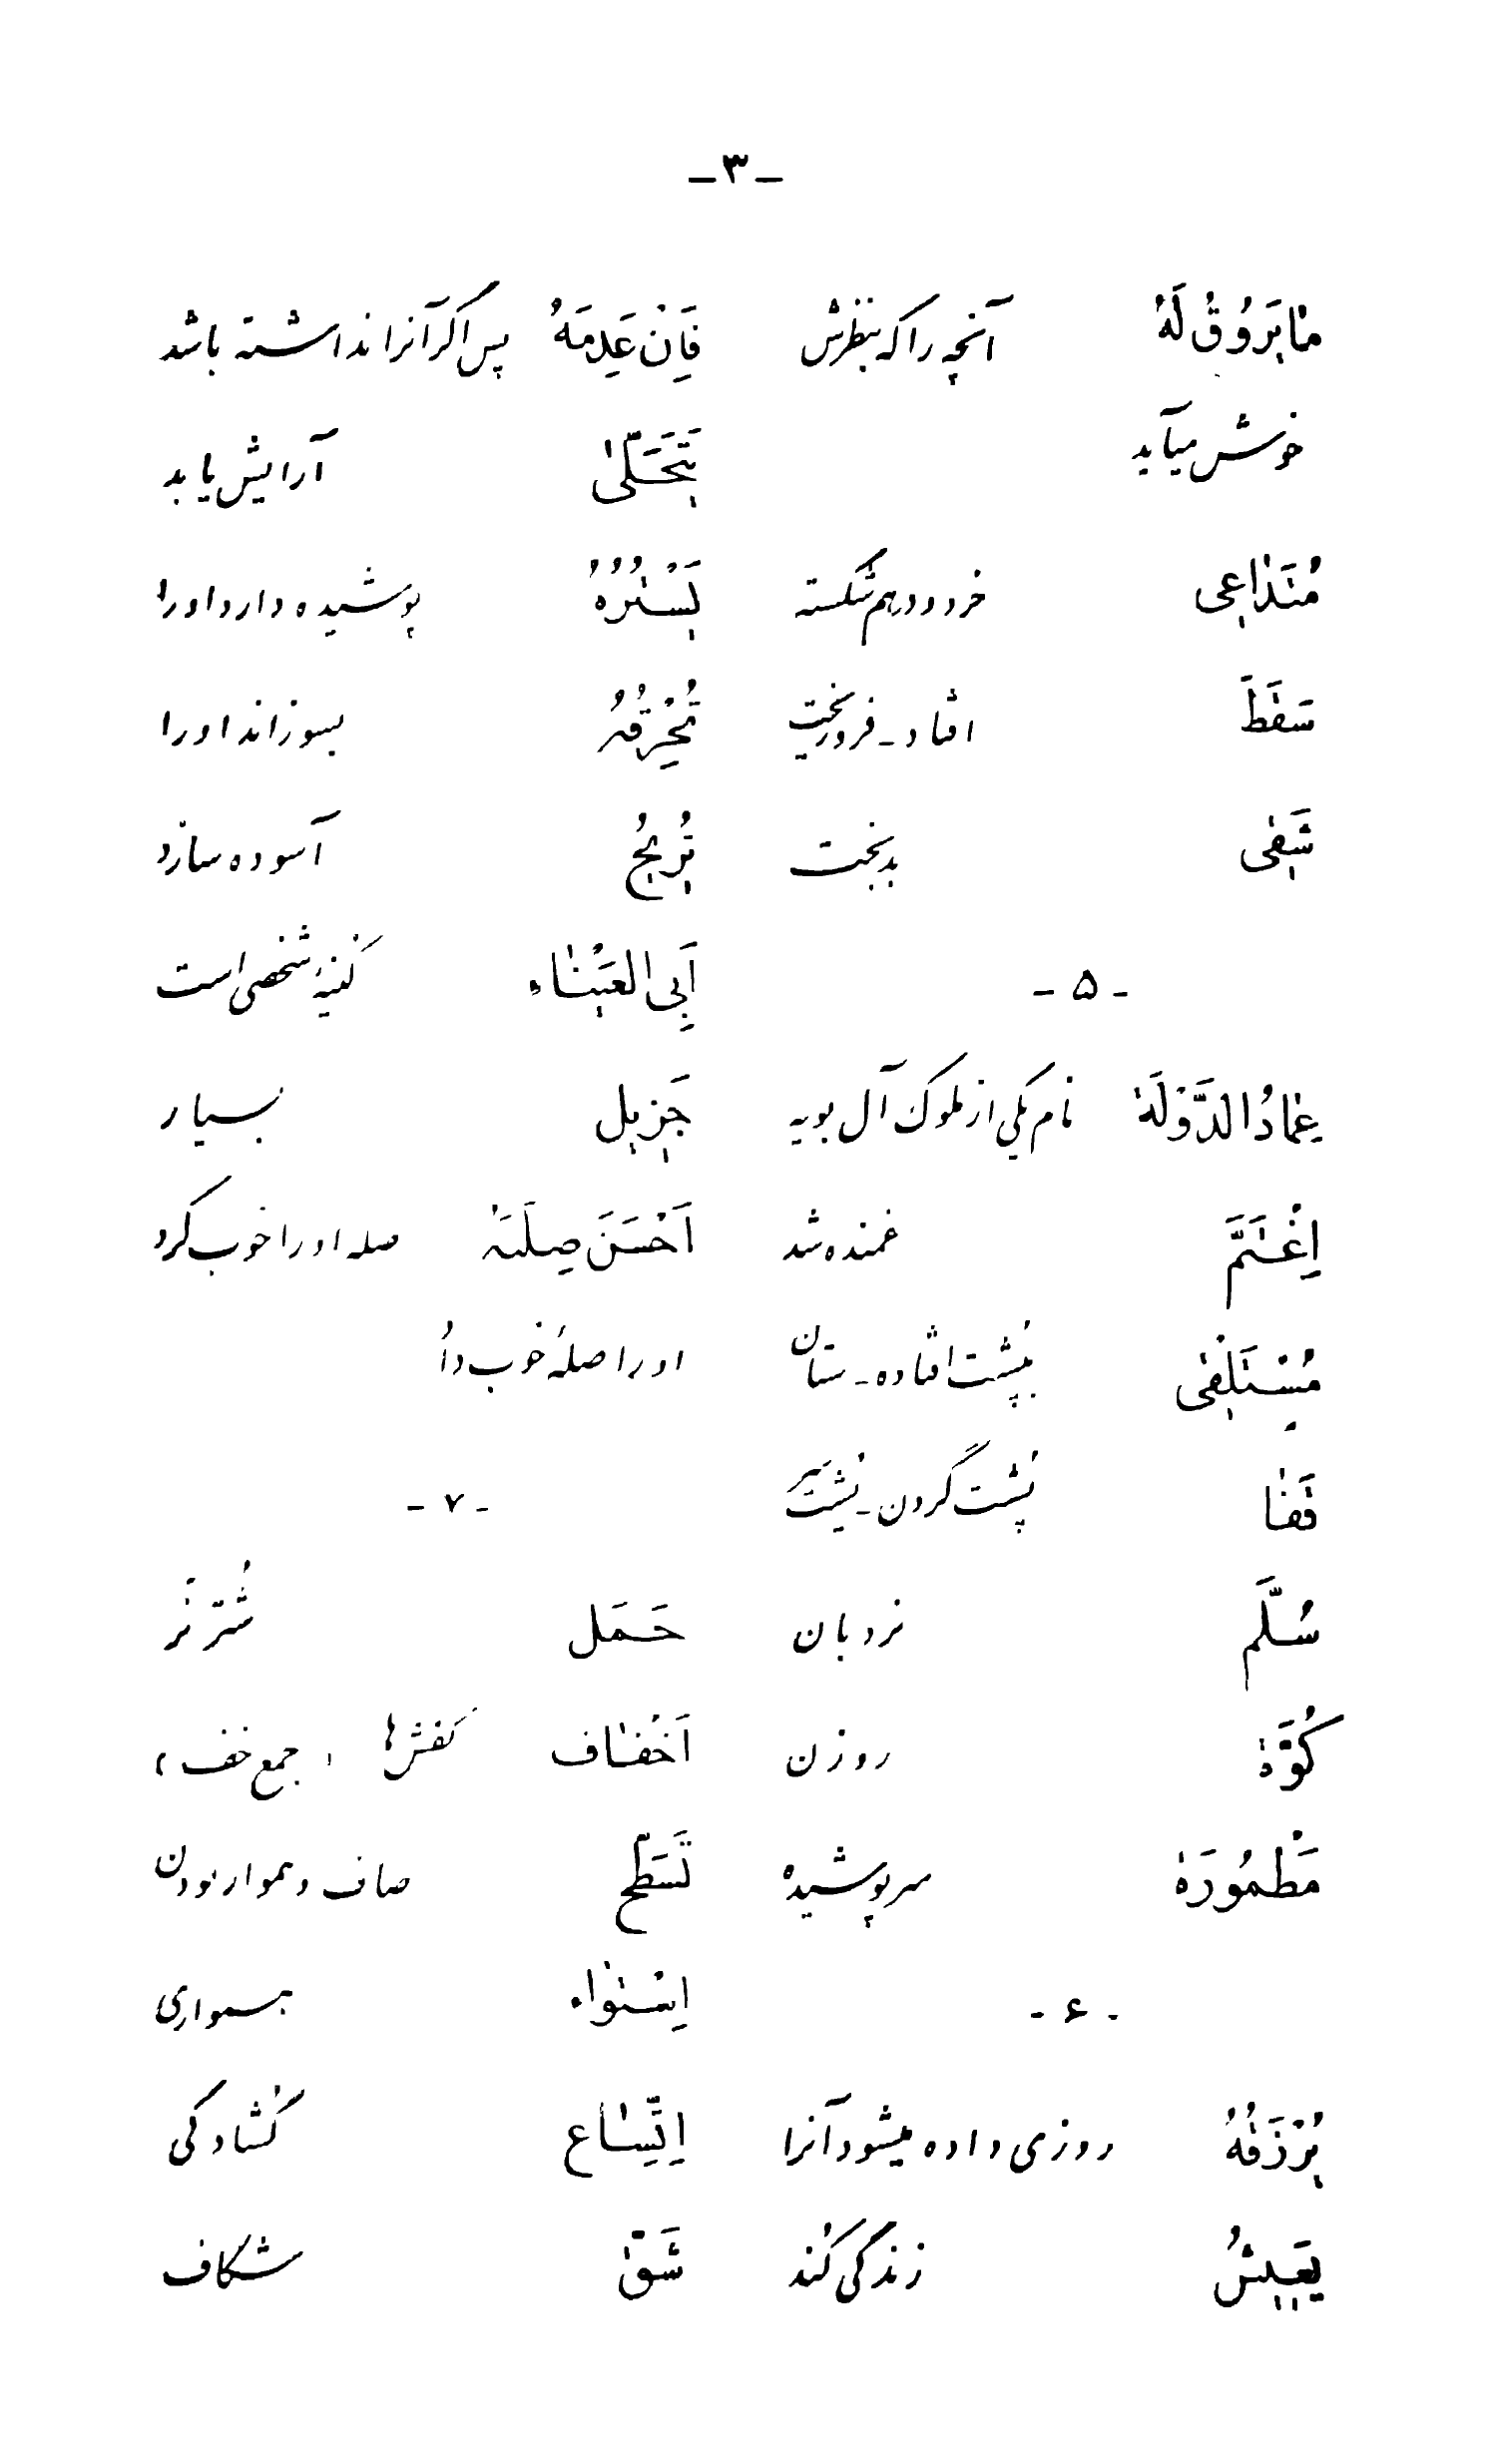 -۳-
مٰا يَرُوُقُ لَهُ آنچه را که بنظرش
خوش میآید
مُتَدٰاعِی خرد و درهم شکسته
سَقَطَ افتاد - فروریخت
شَقِی بدبخت
- ۵ -
عِمٰادُ الدَّوْلَة نام یکی از ملوک آل بویه
اِغْتَمَّ غمنده شد
مُسْتَلْقٖی بپشت افتاده - ستان
قَفٰا پشت گردن - پشت سر
سُلَّم نردبان
كُوَّة روزن
مَطْمُورَة سرپوشیده
- ۶ -
يُرْزَقُهُ روزی داده میشود آنرا
يَعيشُ زندگی کند
فَاِنْ عَدِمَهُ پس اگر آنرا نداشته باشد
يَتَحَلّىٰ آرایش یابد
يَسْتُرُهُ پوشیده دارد او را
تُحْرِقُهُ بسوزاند او را
تُريحُ آسوده سازد
اَبِی العَيْنٰاء کنیهٔ شخصی است
جَزيل بسیار
اَحْسَنَ صِلَتَهُ صله او را خوب کرد
او را صلهٔ خوب داد
- ۷ -
حَمَل شتر نر
اَخْفٰاف کفش‌ها (جمع خف)
تَسَطُّح صاف و هموار بودن
اِسْتِوٰاء همواری
اِتِّسٰاع گشادگی
شَقّ شکاف